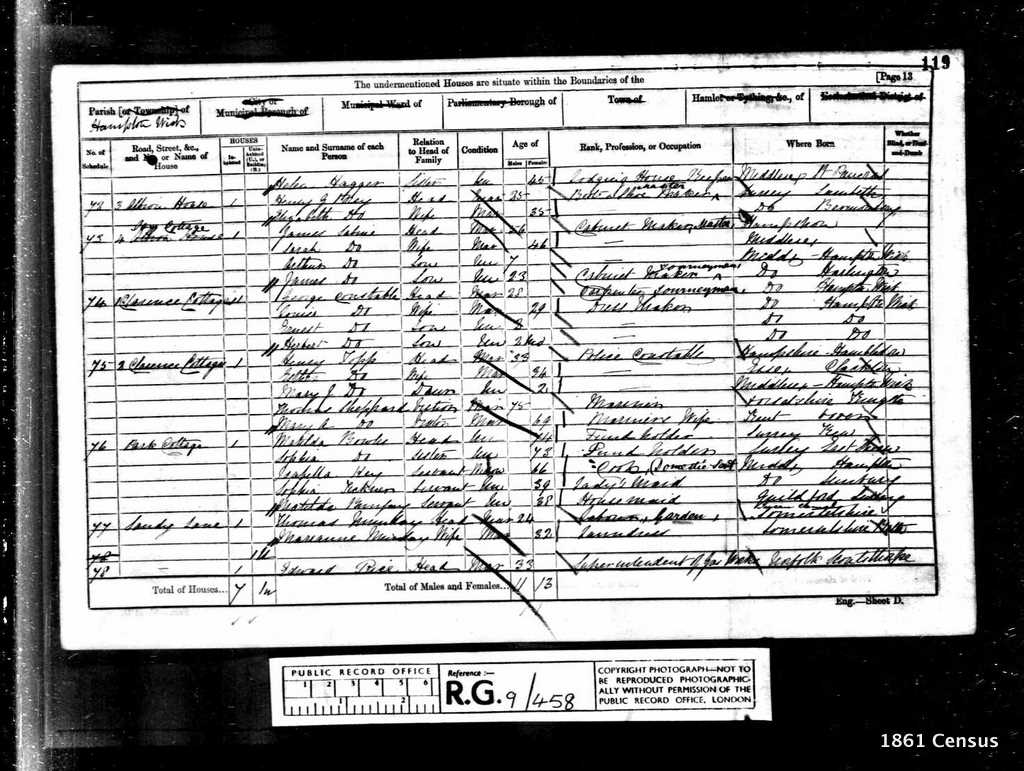 119
[Page 13
The undermentioned Houses are situate within the Boundaries of the
Parish [or Township] of
Hampton Wick
City or Municipal Borough of
Municipal Ward of
Parliamentary Borough of
Town of
Hamlet or Tything, &c., of
Ecclesiastical District of
No. of Schedule
Road, Street, &c., and No. or Name of House
HOUSES
Inhabited
Uninhabited (U.), or Building (B.)
Name and Surname of each Person
Relation to Head of Family
Condition
Age of
Males
Females
Rank, Profession, or Occupation
Where Born
Whether Blind, or Deaf-and-Dumb
Helen Hagger Sister Un 45 Lodging House Middlesex St Pancras
72 3 Albion House 1 Henry G Head Mar 25 Boot & Shoe Maker master Surrey Lambeth
Elizabeth Do Wife Mar 35 Do
73 4 Albion House Ivy Cottage 1 James Head Mar Cabinet Maker Master Hampshire
Sarah Do Wife Mar 46 — Middlesex
Arthur Do Son Un 7 — Middx Hampton Wick
James Do Son Un 23 Cabinet Maker Journeyman Do Harlington
74 Clarence Cottage 1 George Constable Head Mar 28 Carpenter Journeyman Do Hampton Wick
Louisa Do Wife Mar 29 Dress Maker Do Hampton Wick
Ernest Do Son Un — Do Do
Herbert Do Son Un — Do Do
75 2 Clarence Cottage 1 Henry Topp Head Mar 33 Police Constable Hampshire Hambledon
Do Wife Mar — Essex
Mary J Do Daur Un 2 — Middlesex Hampton Wick
Thomas Sheppard Visitor Mar 75 Mariner
Mary A Do Visitor Mar 69 Mariners Wife Kent Dover
76 Park Cottage 1 Matilda Bowles Head Un 74 Fund holder Surrey Kew
Sophia Do Sister Un 73 Fund holder Surrey East Sheen
Isabella Key Servant 66 Cook Domestic Servt Middx Hampton
Sophia Servant Un 39 Lady's Maid Do Sunbury
Matilda Servant Un 38 House maid Guildford Surrey
77 Sandy Lane 1 Thomas Head Mar 24 Labourer, Garden, Somersetshire
Marianne Wife Mar 32 Laundress Somersetshire
78 1U
78 — 1 Edward Rice Head Mar 33 Superintendent of Gas Works Norfolk
Total of Houses... 7 1u
Total of Males and Females... 11 13
Eng.—Sheet D.
PUBLIC RECORD OFFICE
1 2 3 4 5 6
1 2
Reference :-
R.G. 9/458
COPYRIGHT PHOTOGRAPH—NOT TO
BE REPRODUCED PHOTOGRAPHIC-
ALLY WITHOUT PERMISSION OF THE
PUBLIC RECORD OFFICE, LONDON
1861 Census